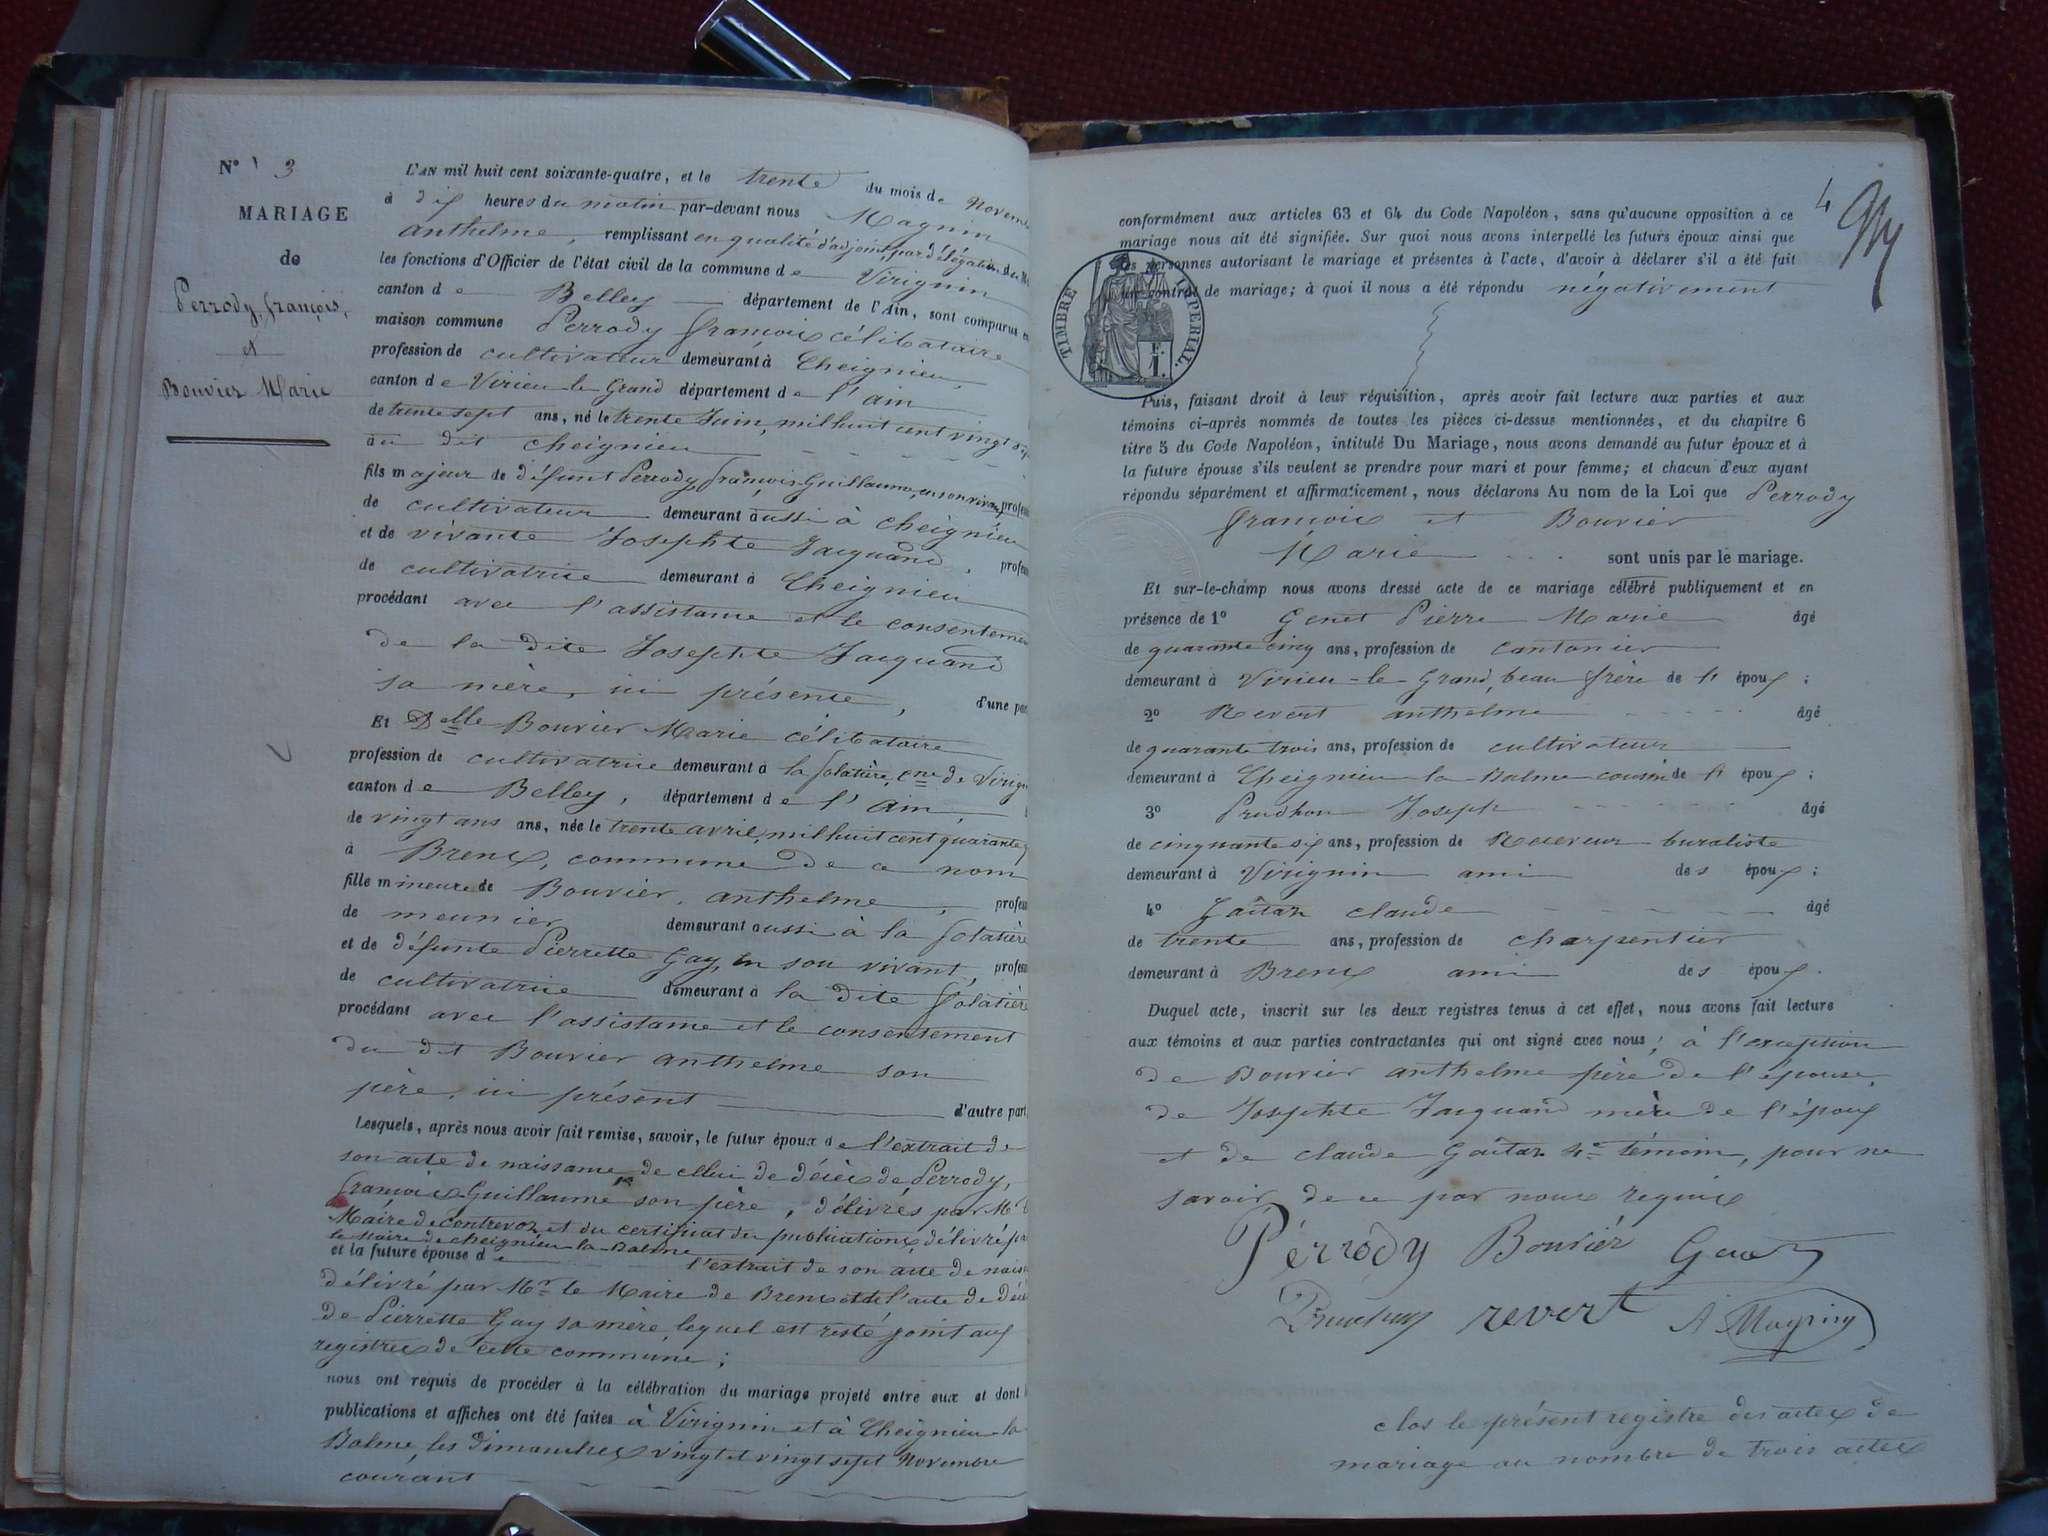 N° 3
MARIAGE
de
Perrody, françois,
et
Bouvier Marie
L'AN mil huit cent soixante-quatre, et le trente du mois de Novem
à dix heures du matin par-devant nous Magnin
anthelme, remplissant en qualité d'adjoint, par délégation du
les fonctions d'Officier de l'état civil de la commune de Virignin
canton de Belley département de l'Ain, sont comparus en
maison commune Perrody françois célibataire
profession de cultivateur demeurant à Cheignieu,
canton de Virieu le Grand département de l'ain
de trente sept ans, né le trente Juin, mil huit cent vingt
au dit cheignieu
fils majeur de défunt Perrody françois Guillaume, en son vivant, profess
de cultivateur demeurant aussi à cheignieu
et de vivante Josephte Jacquand, profess
de cultivatrice demeurant à Cheignieu
procédant avec l'assistance et le consenteme
de la dite Josephte Jacquand
sa mère, ici présente, d'une part
Et Delle Bouvier Marie célibataire
profession de cultivatrice demeurant à la folatière, cne de Virign
canton de Belley, département de l'Ain,
de vingt ans ans, née le trente avril, mil huit cent quarante
à Brens, commune de ce nom
fille mineure de Bouvier, anthelme, profess
de meunier demeurant aussi à la folatière
et de défunte Pierrette Gay, en son vivant, profess
de cultivatrice demeurant à la dite folatière
procédant avec l'assistance et le consentement
du dit Bouvier anthelme son
père, ici présent d'autre part,
Lesquels, après nous avoir fait remise, savoir, le futur époux de l'extrait de
son acte de naissance, de celui de décès de Perrody,
françois Guillaume son père, délivrés par Mr
Maire de contrevoz, et du certificat de publications, délivré p
le Maire de cheignieu la Balme
et la future épouse de l'extrait de son acte de nais
délivré par Mr le Maire de Brens et de l'acte de décè
de Pierrette Gay sa mère, lequel est resté joint aux
registres de cette commune;
nous ont requis de procéder à la célébration du mariage projeté entre eux et dont l
publications et affiches ont été faites à Virignin et à Cheignieu la
Balme, les dimanches vingt et vingt sept Novembre
courant
4
conformément aux articles 63 et 64 du Code Napoléon, sans qu'aucune opposition à ce
mariage nous ait été signifiée. Sur quoi nous avons interpellé les futurs époux ainsi que
les personnes autorisant le mariage et présentes à l'acte, d'avoir à déclarer s'il a été fait
un contrat de mariage; à quoi il nous a été répondu négativement
TIMBRE IMPERIAL.
F.
1.
Puis, faisant droit à leur réquisition, après avoir fait lecture aux parties et aux
témoins ci-après nommés de toutes les pièces ci-dessus mentionnées, et du chapitre 6
titre 5 du Code Napoléon, intitulé Du Mariage, nous avons demandé au futur époux et à
la future épouse s'ils veulent se prendre pour mari et pour femme; et chacun d'eux ayant
répondu séparément et affirmativement, nous déclarons Au nom de la Loi que Perrody
françois et Bouvier
Marie sont unis par le mariage.
Et sur-le-champ nous avons dressé acte de ce mariage célébré publiquement et en
présence de 1° Genet Pierre Marie âgé
de quarante cinq ans, profession de cantonier
demeurant à Virieu-le-Grand, beau frère de l' époux;
2° Revert anthelme âgé
de quarante trois ans, profession de cultivateur
demeurant à Cheignieu la Balme cousin de l' époux;
3° Prudhon Joseph âgé
de cinquante six ans, profession de Receveur buraliste
demeurant à Virignin ami des époux;
4° Goîtaz claude âgé
de trente ans, profession de charpentier
demeurant à Brens ami des époux.
Duquel acte, inscrit sur les deux registres tenus à cet effet, nous avons fait lecture
aux témoins et aux parties contractantes qui ont signé avec nous; à l'exception
de Bouvier anthelme père de l'épouse,
de Josephte Jacquand mère de l'époux
et de claude Goîtaz 4e témoin, pour ne
savoir de ce par nous requis
Pérrody Bouviér
revert A Magnin
clos le présent registre des actes de
mariage au nombre de trois actes